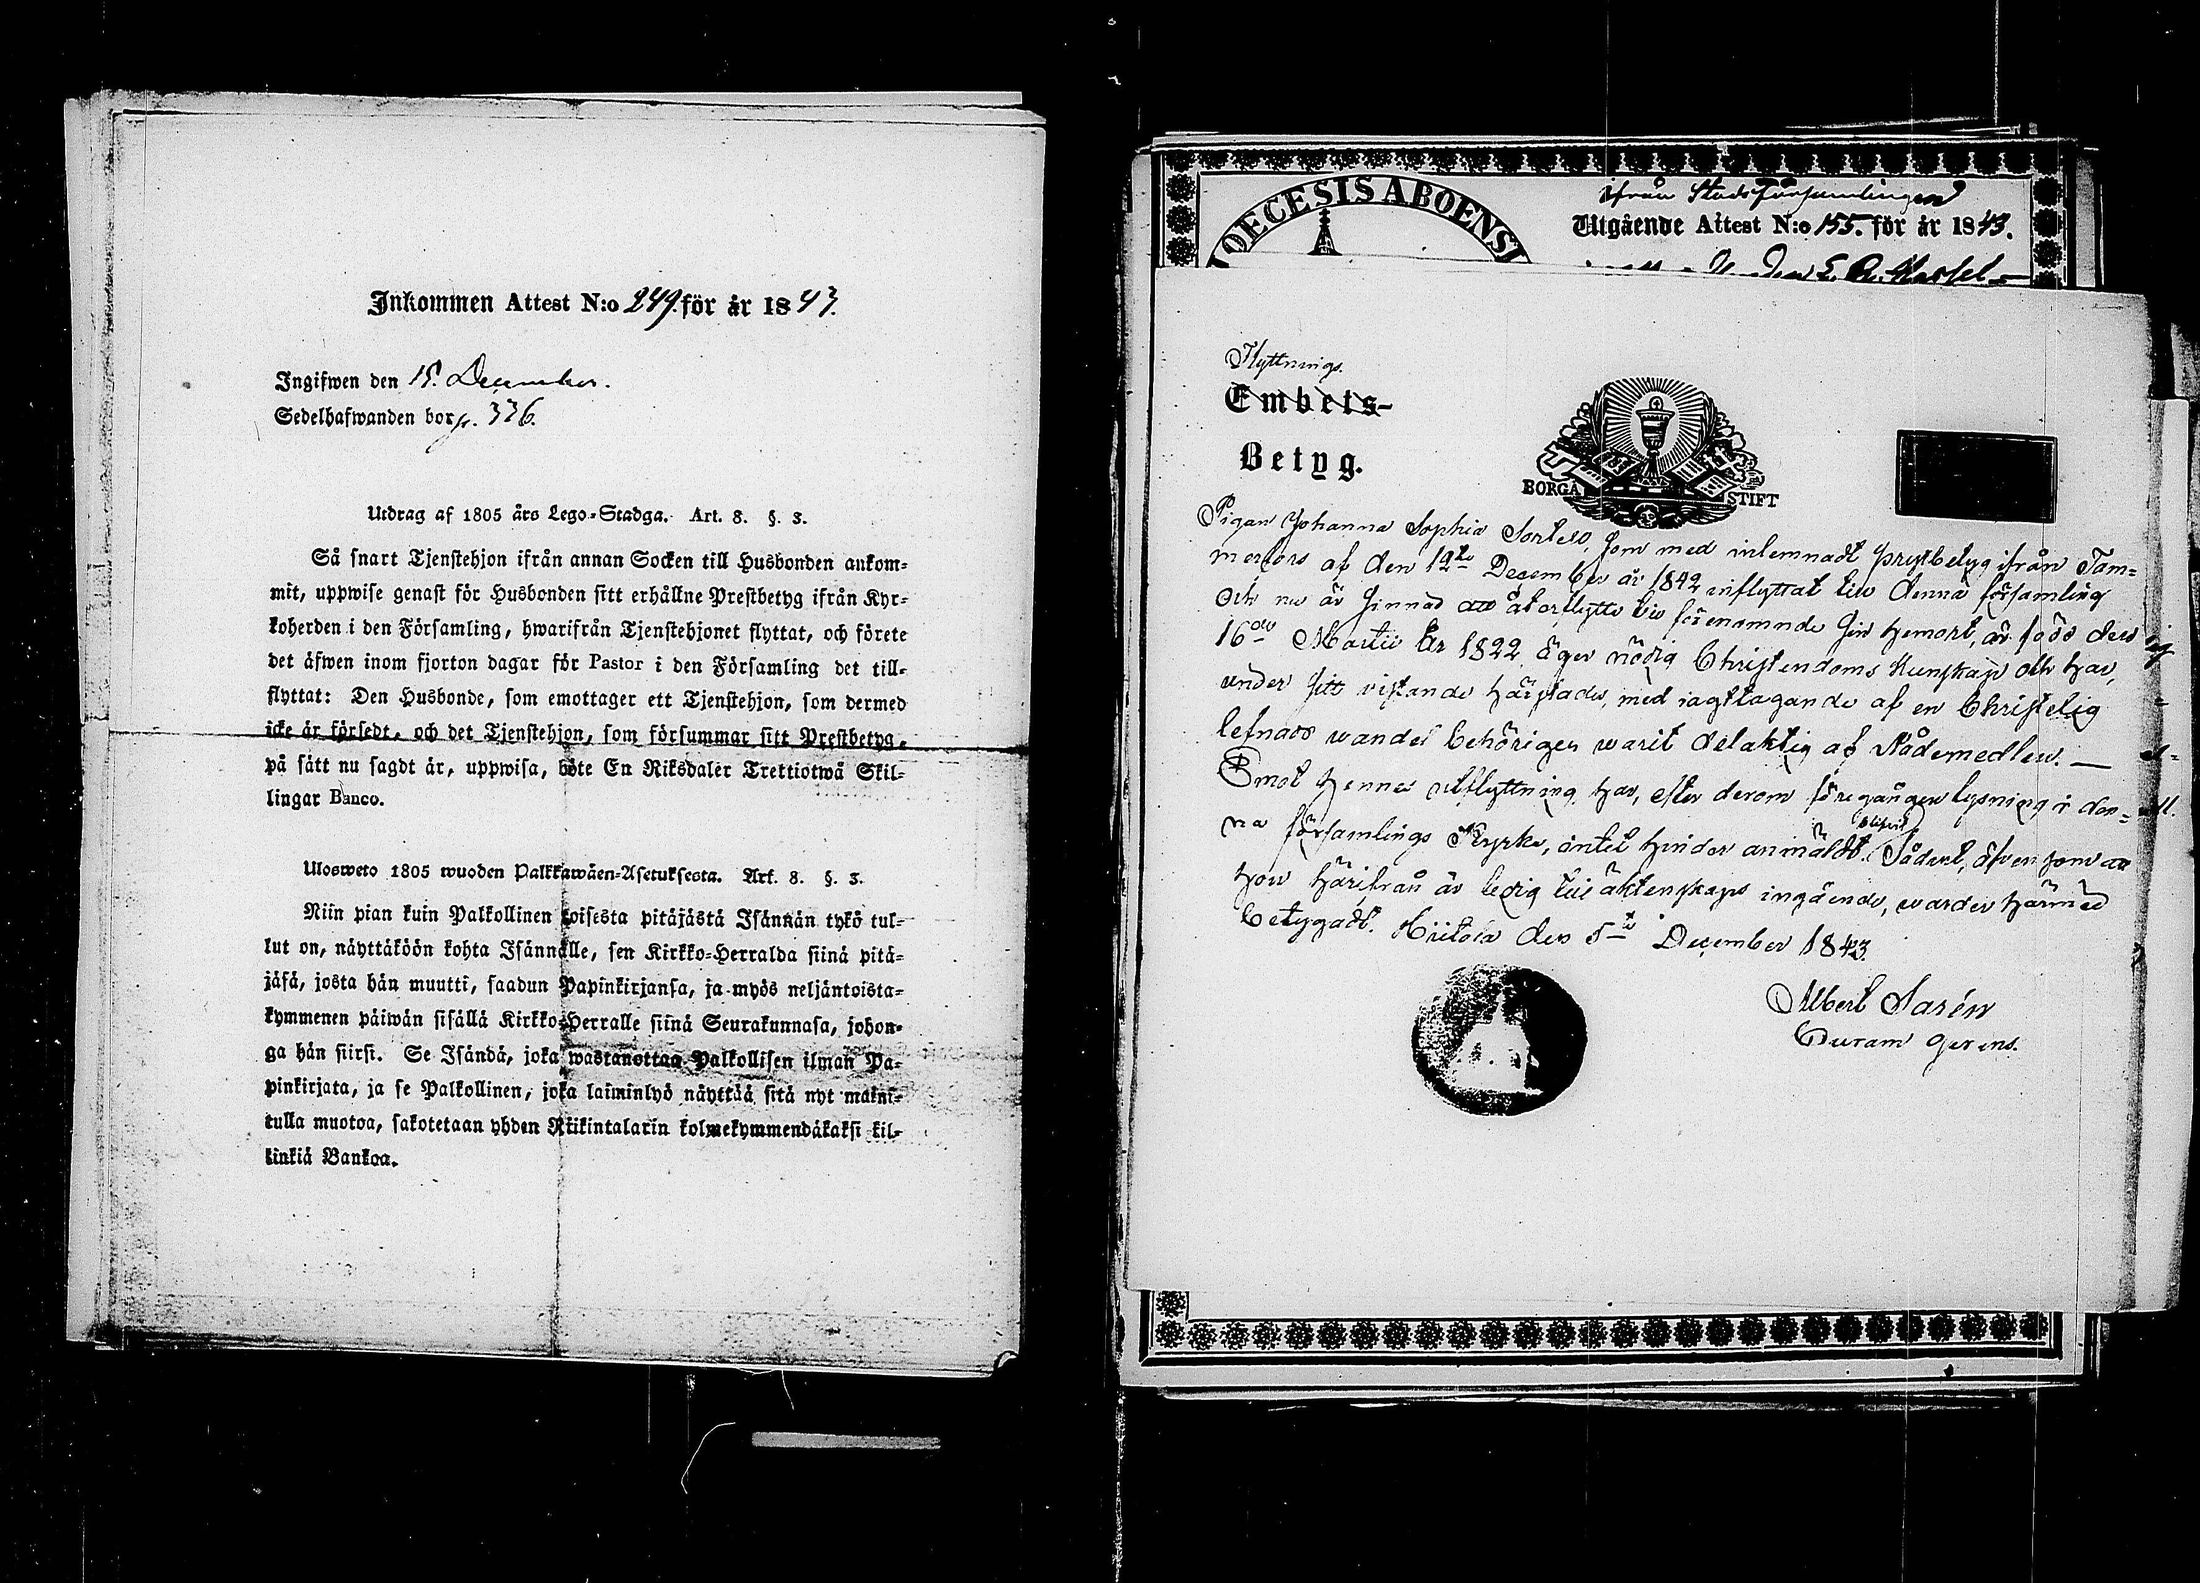 Inkommen Attest N:o 249. för år 1843.
Ingifwen den 15. December.
Sedelhafwanden bor p. 336.
Utdrag af 1805 års Lego-Stadga. Art. 8. §. 3.
Så snart Tjenstehjon ifrån annan Socken till Husbonden ankom-
mit, uppwise genast för Husbonden sitt erhållne Prestbetyg ifrån Kyr-
koherden i den Församling, hwarifrån Tjenstehjonet flyttat, och förete
det äfwen inom fjorton dagar för Pastor i den Församling det till-
flyttat: Den Husbonde, som emottager ett Tjenstehjon, som dermed
icke är försedt, och det Tjenstehjon, som försummar sitt Prestbetyg,
på sätt nu sagdt är, uppwisa, böte En Riksdaler Trettiotwå Skil-
lingar Banco.
Ulosweto 1805 wuoden Palkkawäen-Asetuksesta. Art. 8. §. 3.
Niin pian kuin Palkollinen toisesta pitäjästä Isännän tykö tul-
lut on, näyttäköön kohta Isännälle, sen Kirkko-Herralda siinä pitä-
jäsä, josta hän muutti, saadun Papinkirjansa, ja myös neljäntoista-
kymmenen päiwän sisällä Kirkko-Herralle siinä Seurakunnasa, johon-
ga hän siirsi. Se Isändä, joka wastanottaa Palkollisen ilman Pa-
pinkirjata, ja se Palkollinen, joka laiminlyö näyttää sitä nyt maini-
tulla muotoa, sakotetaan yhden Riikintalarin kolmekymmendäkaksi kil-
linkiä Bankoa.
DIOECESIS ABOENSI
ifrån Stadsförsamlingen
Utgående Attest N:o 155. för år 1843.
Flyttnings
Embets-
Betyg.
BORGÅ STIFT
Pigan Johanna Sophia Sortell, som med inlemnadt prestbetyg ifrån Tam=
merfors af den 12te December år 1842 inflyttat till denna församling
och nu är sinnad att återflytta till förenämnde sin hemort, är född den
16de Martii År 1822, äger nödig Christendoms kunskap och har,
under sitt vistande härstädes, med iagttagande af en Christelig
lefnads wandel behörigen warit delaktig af Nådemedlen. —
Emot hennes utflyttning har, efter derom föregången lysning i den=
na församlings Kyrka, intet hinder anmäldt blifvit. Sådant, äfven som att
hon härifrån är ledig till äktenskaps ingående, warder härmed
betygadt. Hiitola den 5te December 1843.
Albert Sarén
Curam gerens.